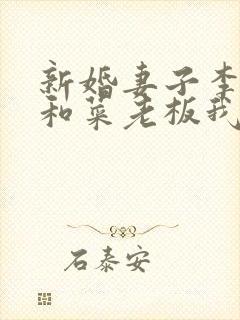 新婚妻子李
和菜老板我
石泰安